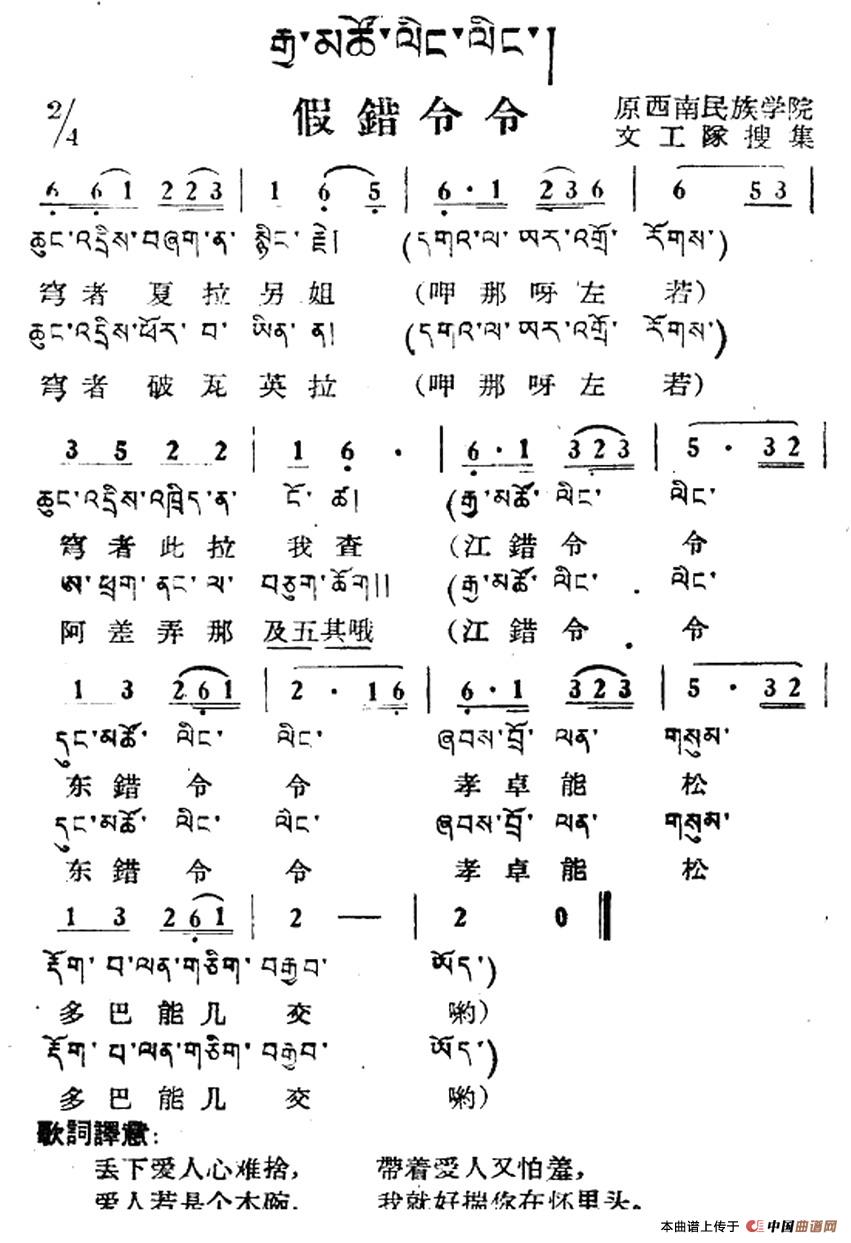 རྒྱ་མཚོ་ལིང་ལིང་།
2/4 假錯令令 原西南民族学院
文工隊搜集
6 6 1 2 2 3 | 1 6 5 | 6 · 1 2 3 6 | 6 5 3 |
ཆུང་འདྲིས་བཞག་ན་ སྙིང་རྗེ། (དགའ་ལ་ ཨར་འགྲོ་ རོགས་)
穹者夏拉另姐 (呷那呀左若)
ཆུང་འདྲིས་ཕོར་ བ་ ཡིན་ ན། (དགའ་ལ་ ཨར་འགྲོ་ རོགས་)
穹者破瓦英拉 (呷那呀左若)
3 5 2 2 | 1 6 · | 6 · 1 3 2 3 | 5 · 3 2 |
ཆུང་འདྲིས་འཁྲིད་ན་ ངོ་ ཚ། (རྒྱ་མཚོ་ ལིང་ ལིང་
穹者此拉我查 (江錯令令
ཨ་ཕྲག་ནང་ལ་ བཅུག་ཆོག།། (རྒྱ་མཚོ་ལིང་ ལིང་
阿差弄那及五其哦 (江錯令令
1 3 2 6 1 | 2 · 1 6 | 6 · 1 3 2 3 | 5 · 3 2 |
དུང་མཚོ་ ལིང་ ལིང་ ཞབས་བྲོ་ ལན་ གསུམ་
东錯令令 孝卓能松
དུང་མཚོ་ ལིང་ ལིང་ ཞབས་བྲོ་ ལན་ གསུམ་
东錯令令 孝卓能松
1 3 2 6 1 | 2 — | 2 0 ‖
རྡོག་ པ་ལན་གཅིག་ བརྒྱབ་ ཨོད་)
多巴能几交 喲)
རྡོག་ པ་ལན་གཅིག་ བརྒྱབ་ ཨོད་)
多巴能几交 喲)
歌詞譯意:
丢下爱人心难捨, 帶着愛人又怕羞,
爱人若是个木碗, 我就好揣你在怀里头。
本曲谱上传于 中国曲谱网